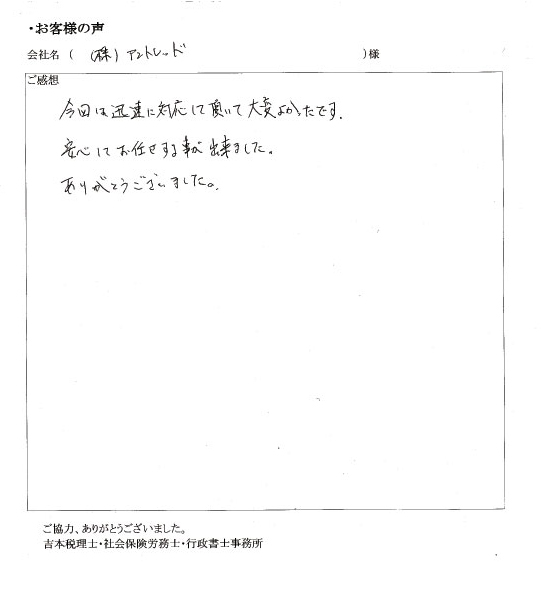 ・お客様の声
会社名（ (株) アントレッド ）様
ご感想
今回は迅速に対応して頂いて大変よかったです.
安心してお任せする事が出来ました。
ありがとうございました。
ご協力、ありがとうございました。
吉本税理士・社会保険労務士・行政書士事務所